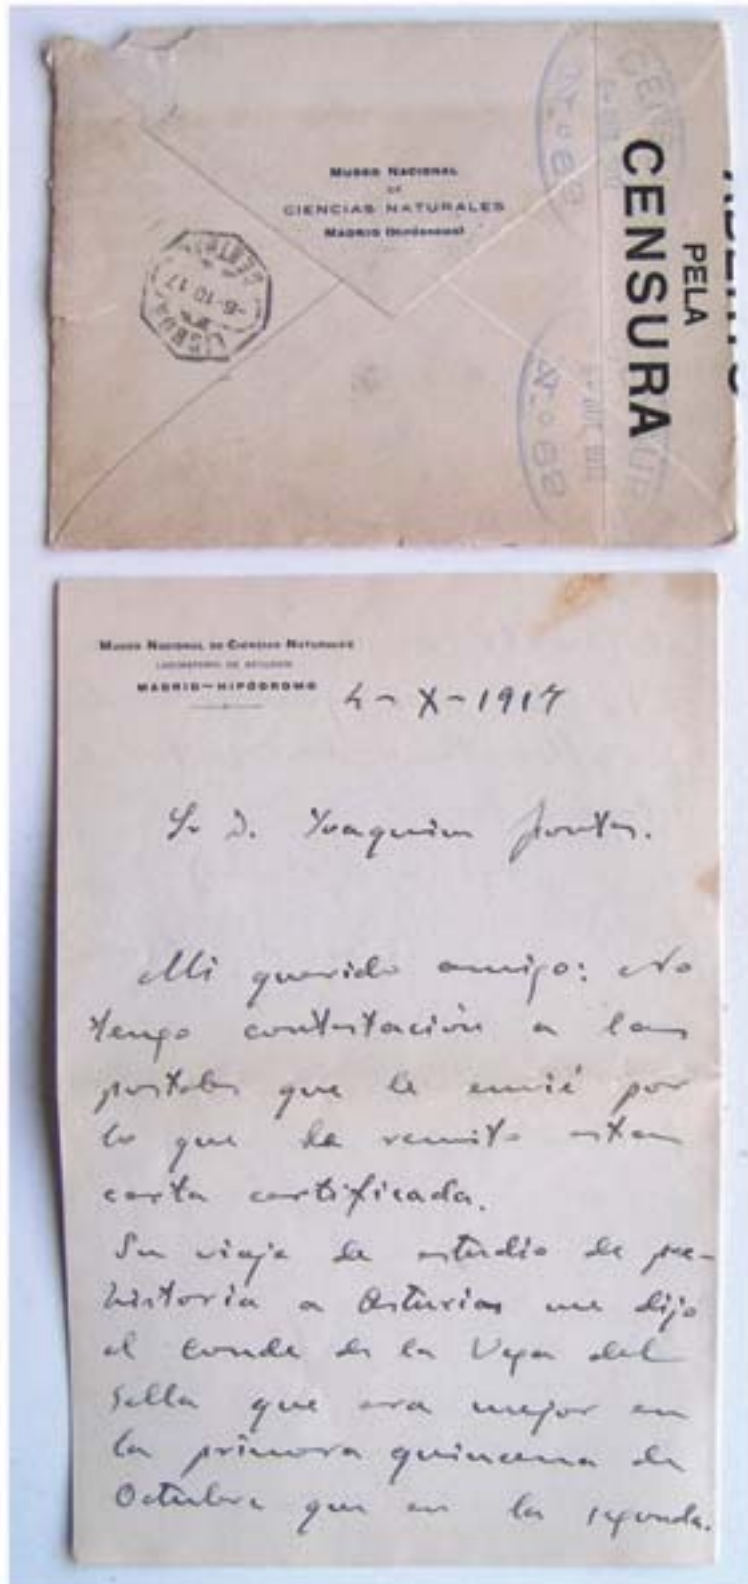 MUSEO NACIONAL
DE
CIENCIAS NATURALES
MADRID (Hipódromo)
ABERTO
PELA
CENSURA
LISBOA
CENTRAL
-6-10 17
MUSEO NACIONAL DE CIENCIAS NATURALES
LABORATORIO DE
MADRID-HIPÓDROMO
4-X-1917
Sr D. Joaquim Fontes.
Mi querido amigo: No
tengo contestación a las
postales que le envié por
lo que le remito esta
carta certificada.
Su viaje de estudio de pre-
historia a Asturias me dijo
el Conde de la Vega del
Sella que era mejor en
la primera quincena de
Octubre que en la segunda.